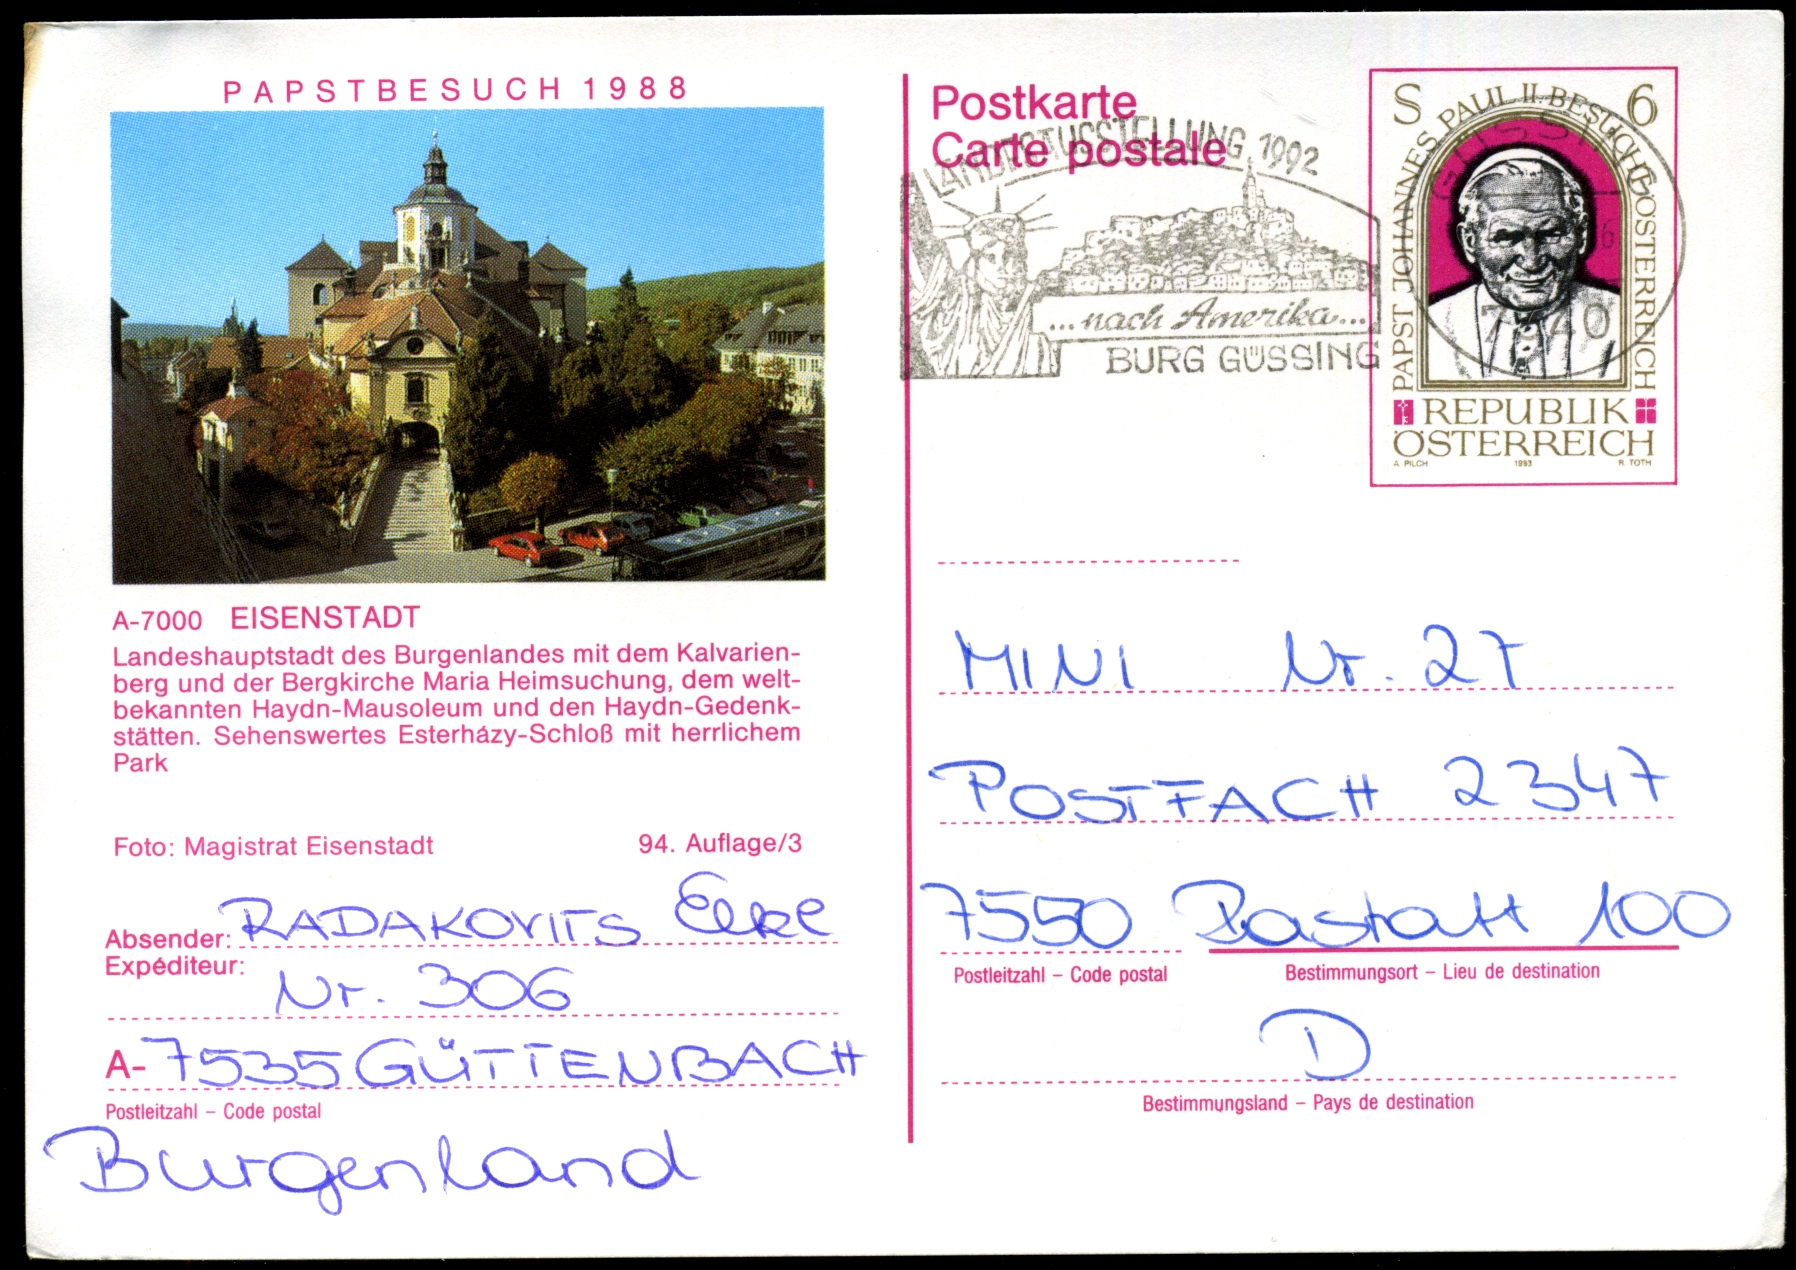 PAPSTBESUCH 1988
A-7000 EISENSTADT
Landeshauptstadt des Burgenlandes mit dem Kalvarien-
berg und der Bergkirche Maria Heimsuchung, dem welt-
bekannten Haydn-Mausoleum und den Haydn-Gedenk-
stätten. Sehenswertes Esterházy-Schloß mit herrlichem
Park
Foto: Magistrat Eisenstadt 94. Auflage/3
Absender: RADAKOVITS Elke
Expéditeur:
Nr. 306
A-7535 GÜTTENBACH
Postleitzahl – Code postal
Burgenland
Postkarte
Carte postale
LANDESAUSSTELLUNG 1992
...nach Amerika...
BURG GÜSSING
S 6
PAPST JOHANNES PAUL II. BESUCHT ÖSTERREICH
REPUBLIK
ÖSTERREICH
A. PILCH 1983 R. TOTH
7540
MINI Nr. 27
POSTFACH 2347
7550 Rastatt 100
Postleitzahl – Code postal Bestimmungsort – Lieu de destination
D
Bestimmungsland – Pays de destination